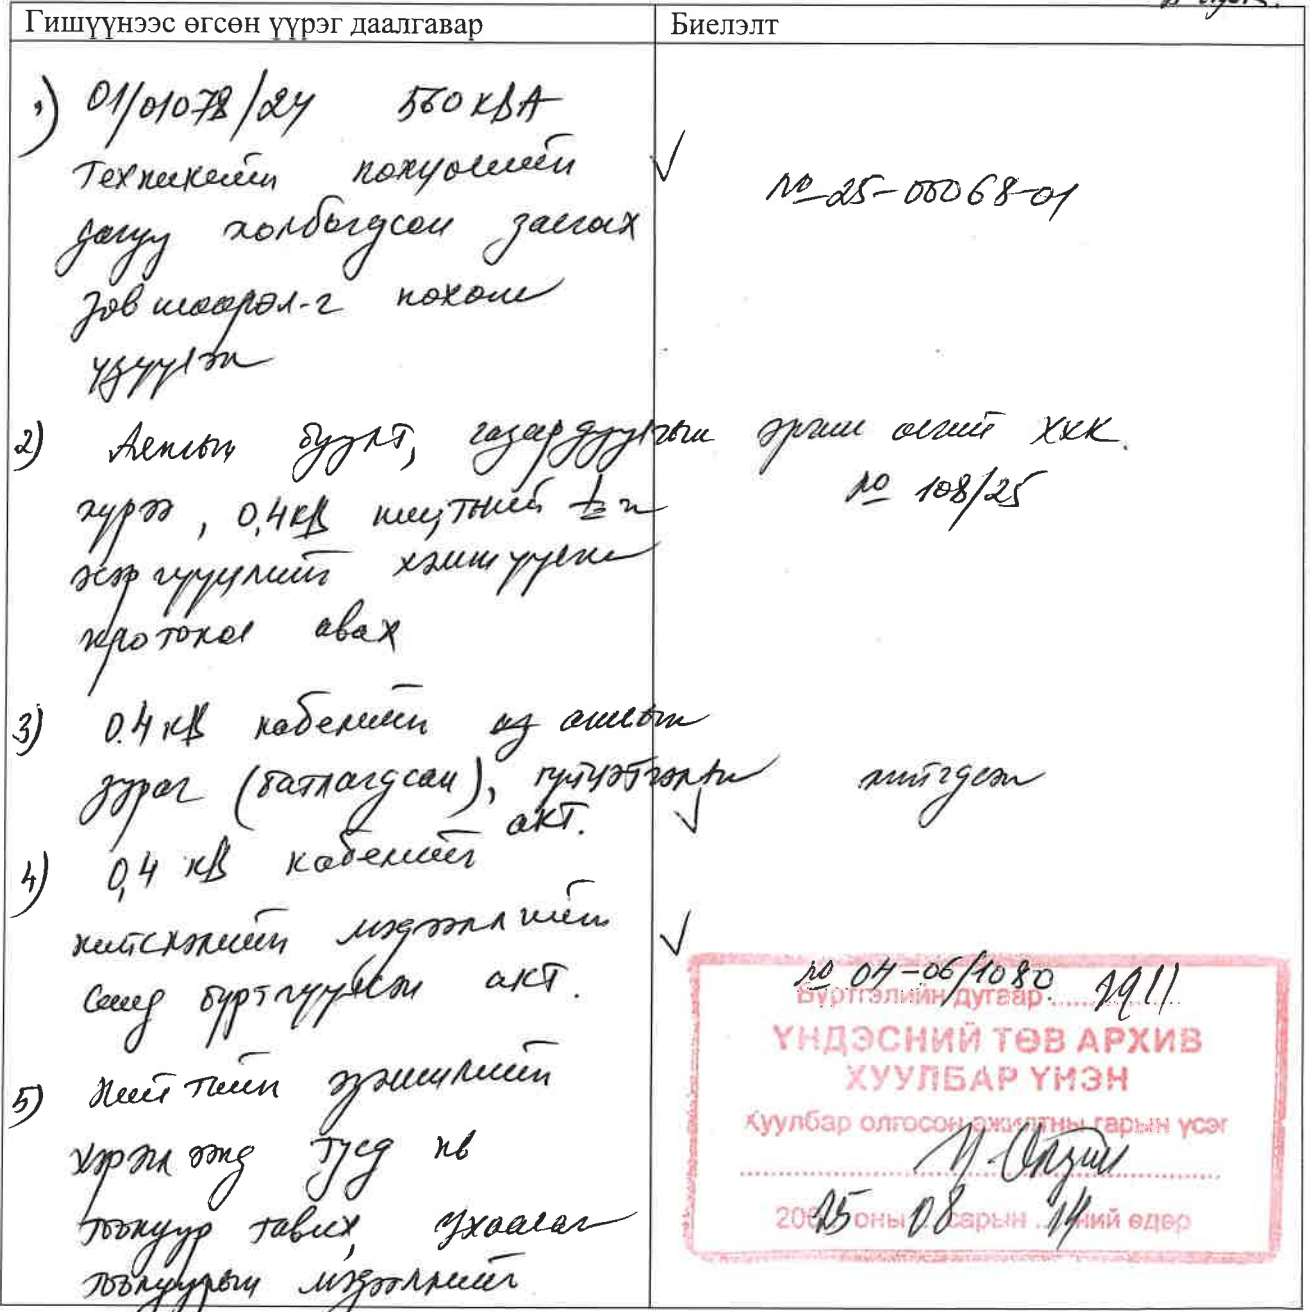 Гишүүнээс өгсөн үүрэг даалгавар
Биелэлт
1) 01/01078/24 560кВА
Техникийн нөхцөлийн
дагуу холбогдсон засгах
зөвшөөрөл-г нөхөж
үзүүлэх
№25-00068-01
2) Аянгын буулт, газардуулгын
хүрээ, 0,4кВ щитний
эсэргүүцлийг хэмжүүлэн
протокол авах
эрчим ХХК.
№ 108/25
3) 0.4кВ кабелийн ашлын
зураг (батлагдсан), гүйцэтгэлийн
акт.
хийгдсэн
4) 0,4 кВ кабелийг
нийслэлийн мэдээллийн
санд бүртгүүлсэн акт.
№ 04-06/1080.
5) Нийтийн эзэмшлийн
хэрэглээнд тусд нь
тоолуур тавих, ухаалаг
тоолуурын мэдээллийг
Бүртгэлийн дугаар 1911
ҮНДЭСНИЙ ТӨВ АРХИВ
ХУУЛБАР ҮНЭН
Хуулбар олгосон ажилтны гарын үсэг
2025 оны 08 сарын 14 ний өдөр